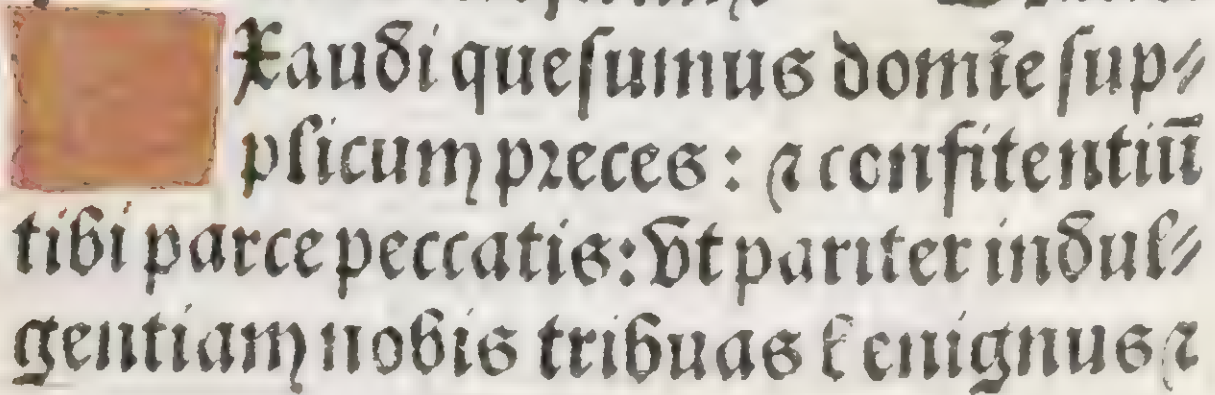 Xaudi quesumus domĩe sup⸗
plicum preces: ⁊ confitentiū
tibi parce peccatis: Vt pariter indul⸗
gentiam nobis tribuas benignus ⁊